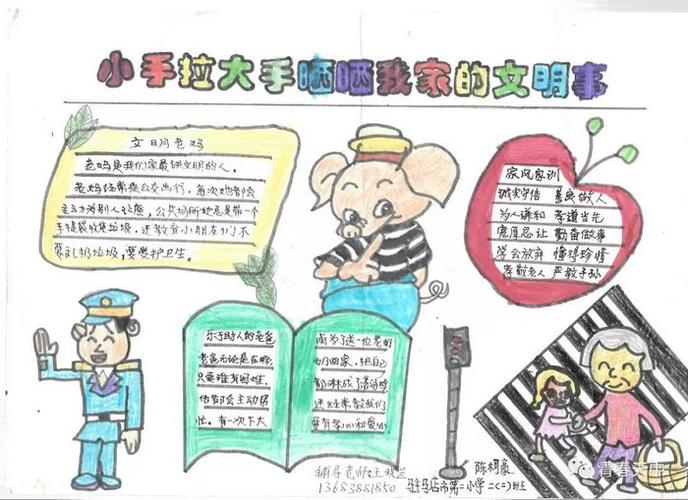 小手拉大手晒晒我家的文明事
文明老妈
老妈是我们家最讲文明的人。
老妈经常乘公交出行，每次她都会
主动为别人让座，公共场所她总是带一个
手提袋收集垃圾，还教育小朋友们不
要乱扔垃圾，要爱护卫生。
家风家训
诚实守信 善良做人
为人谦和 孝道当先
宽厚忍让 勤奋做事
学会放弃 懂得珍惜
孝敬老人 严教子孙
乐于助人的老爸
老爸无论是在哪，
只要谁有困难，
他都会主动帮
忙。有一次下大
雨为了送一位老奶
奶回家，把自己
都淋成了落汤鸡
还经常教我们
要有孝心和爱心。
辅导老师：王
13683881850
陈柯豪
驻马店市第二小学二(二)班
青春天中